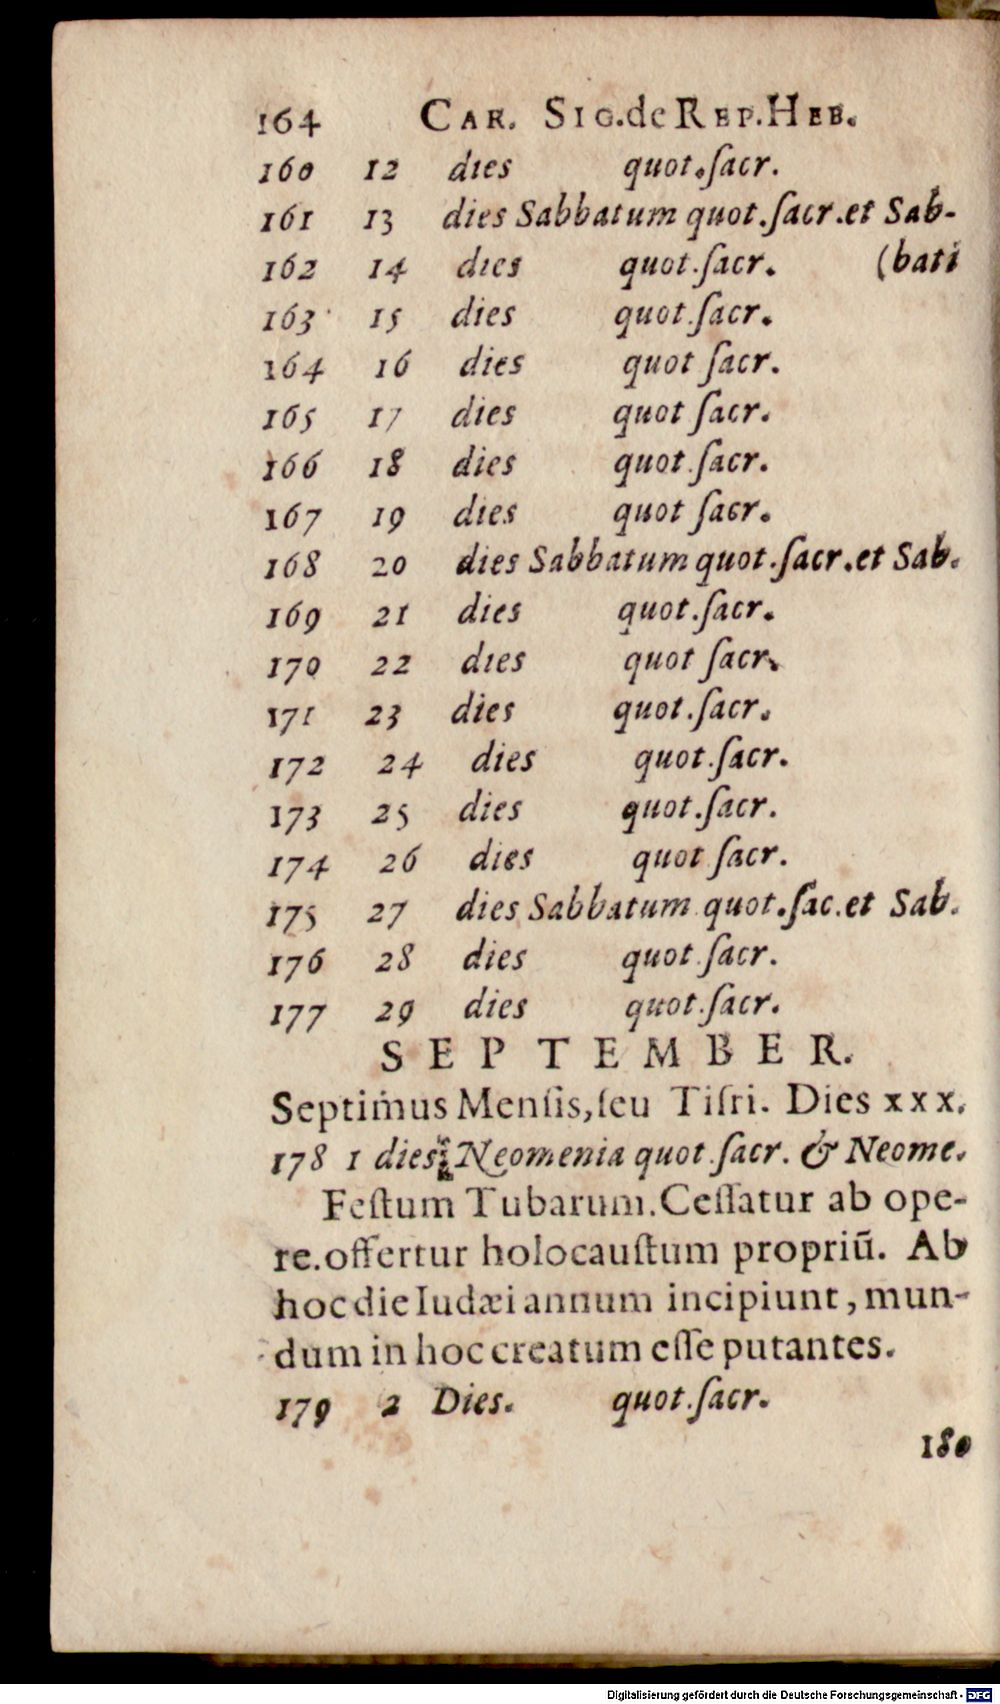 164 CAR. SIG.de REP.HEB.
160 12 dies quot.ſacr.
161 13 dies Sabbatum quot.ſacr.et Sab-
162 14 dies quot.ſacr. (bati
163 15 dies quot.ſacr.
164 16 dies quot ſacr.
165 17 dies quot ſacr.
166 18 dies quot.ſacr.
167 19 dies quot ſacr.
168 20 dies Sabbatum quot.ſacr.et Sab.
169 21 dies quot.ſacr.
170 22 dies quot ſacr.
171 23 dies quot.ſacr.
172 24 dies quot.ſacr.
173 25 dies quot.ſacr.
174 26 dies quot ſacr.
175 27 dies Sabbatum quot.ſac.et Sab.
176 28 dies quot.ſacr.
177 29 dies quot.ſacr.
SEPTEMBER.
Septimus Menſis,ſeu Tiſri. Dies xxx.
178 1 dies Neomenia quot.ſacr. & Neome.
Feſtum Tubarum.Ceſſatur ab ope-
re.offertur holocauſtum propriū. Ab
hoc die Iudæi annum incipiunt, mun-
dum in hoc creatum eſſe putantes.
179 2 Dies. quot.ſacr.
180
Digitalisierung gefördert durch die Deutsche Forschungsgemeinschaft - DFG